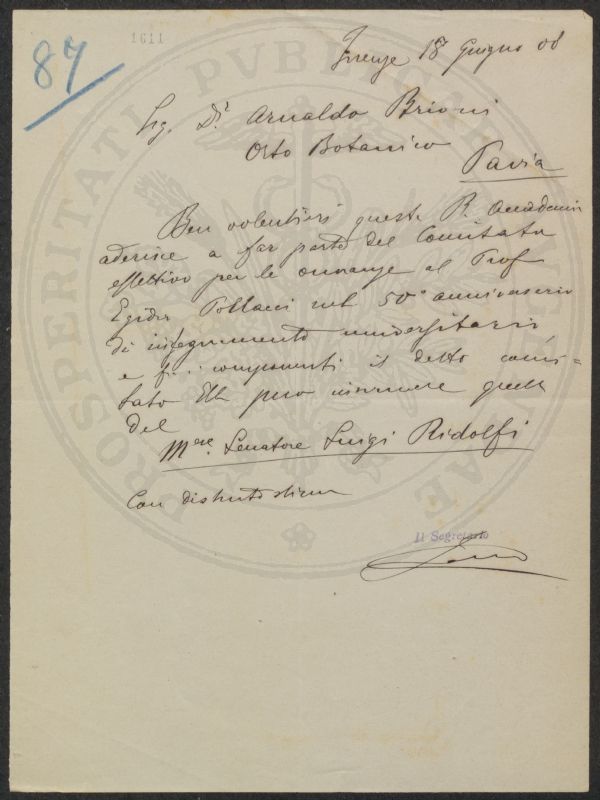 87
1611
PROSPERITATI PVBLICAE
Firenze 18 Giugno 08
Sig. Dr. Arnaldo Brioni
Orto Botanico
Pavia
Ben volentieri questa R. Accademia
aderisce a far parte del Comitato
effettivo per le onoranze al Prof
Egidio Pollacci nel 50° anniversario
di insegnamento universitario
e fra i componenti il detto comi=
tato Ella può inscrivere quello
del
Mse. Senatore Luigi Ridolfi
Con distinta stima
Il Segretario